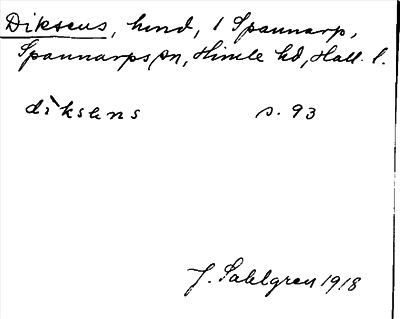 Dikseus, hmd, 1 Spannarp,
Spannarps sn, Himle hd, Hall. l.
diksens s. 93
J. Sahlgren 1918